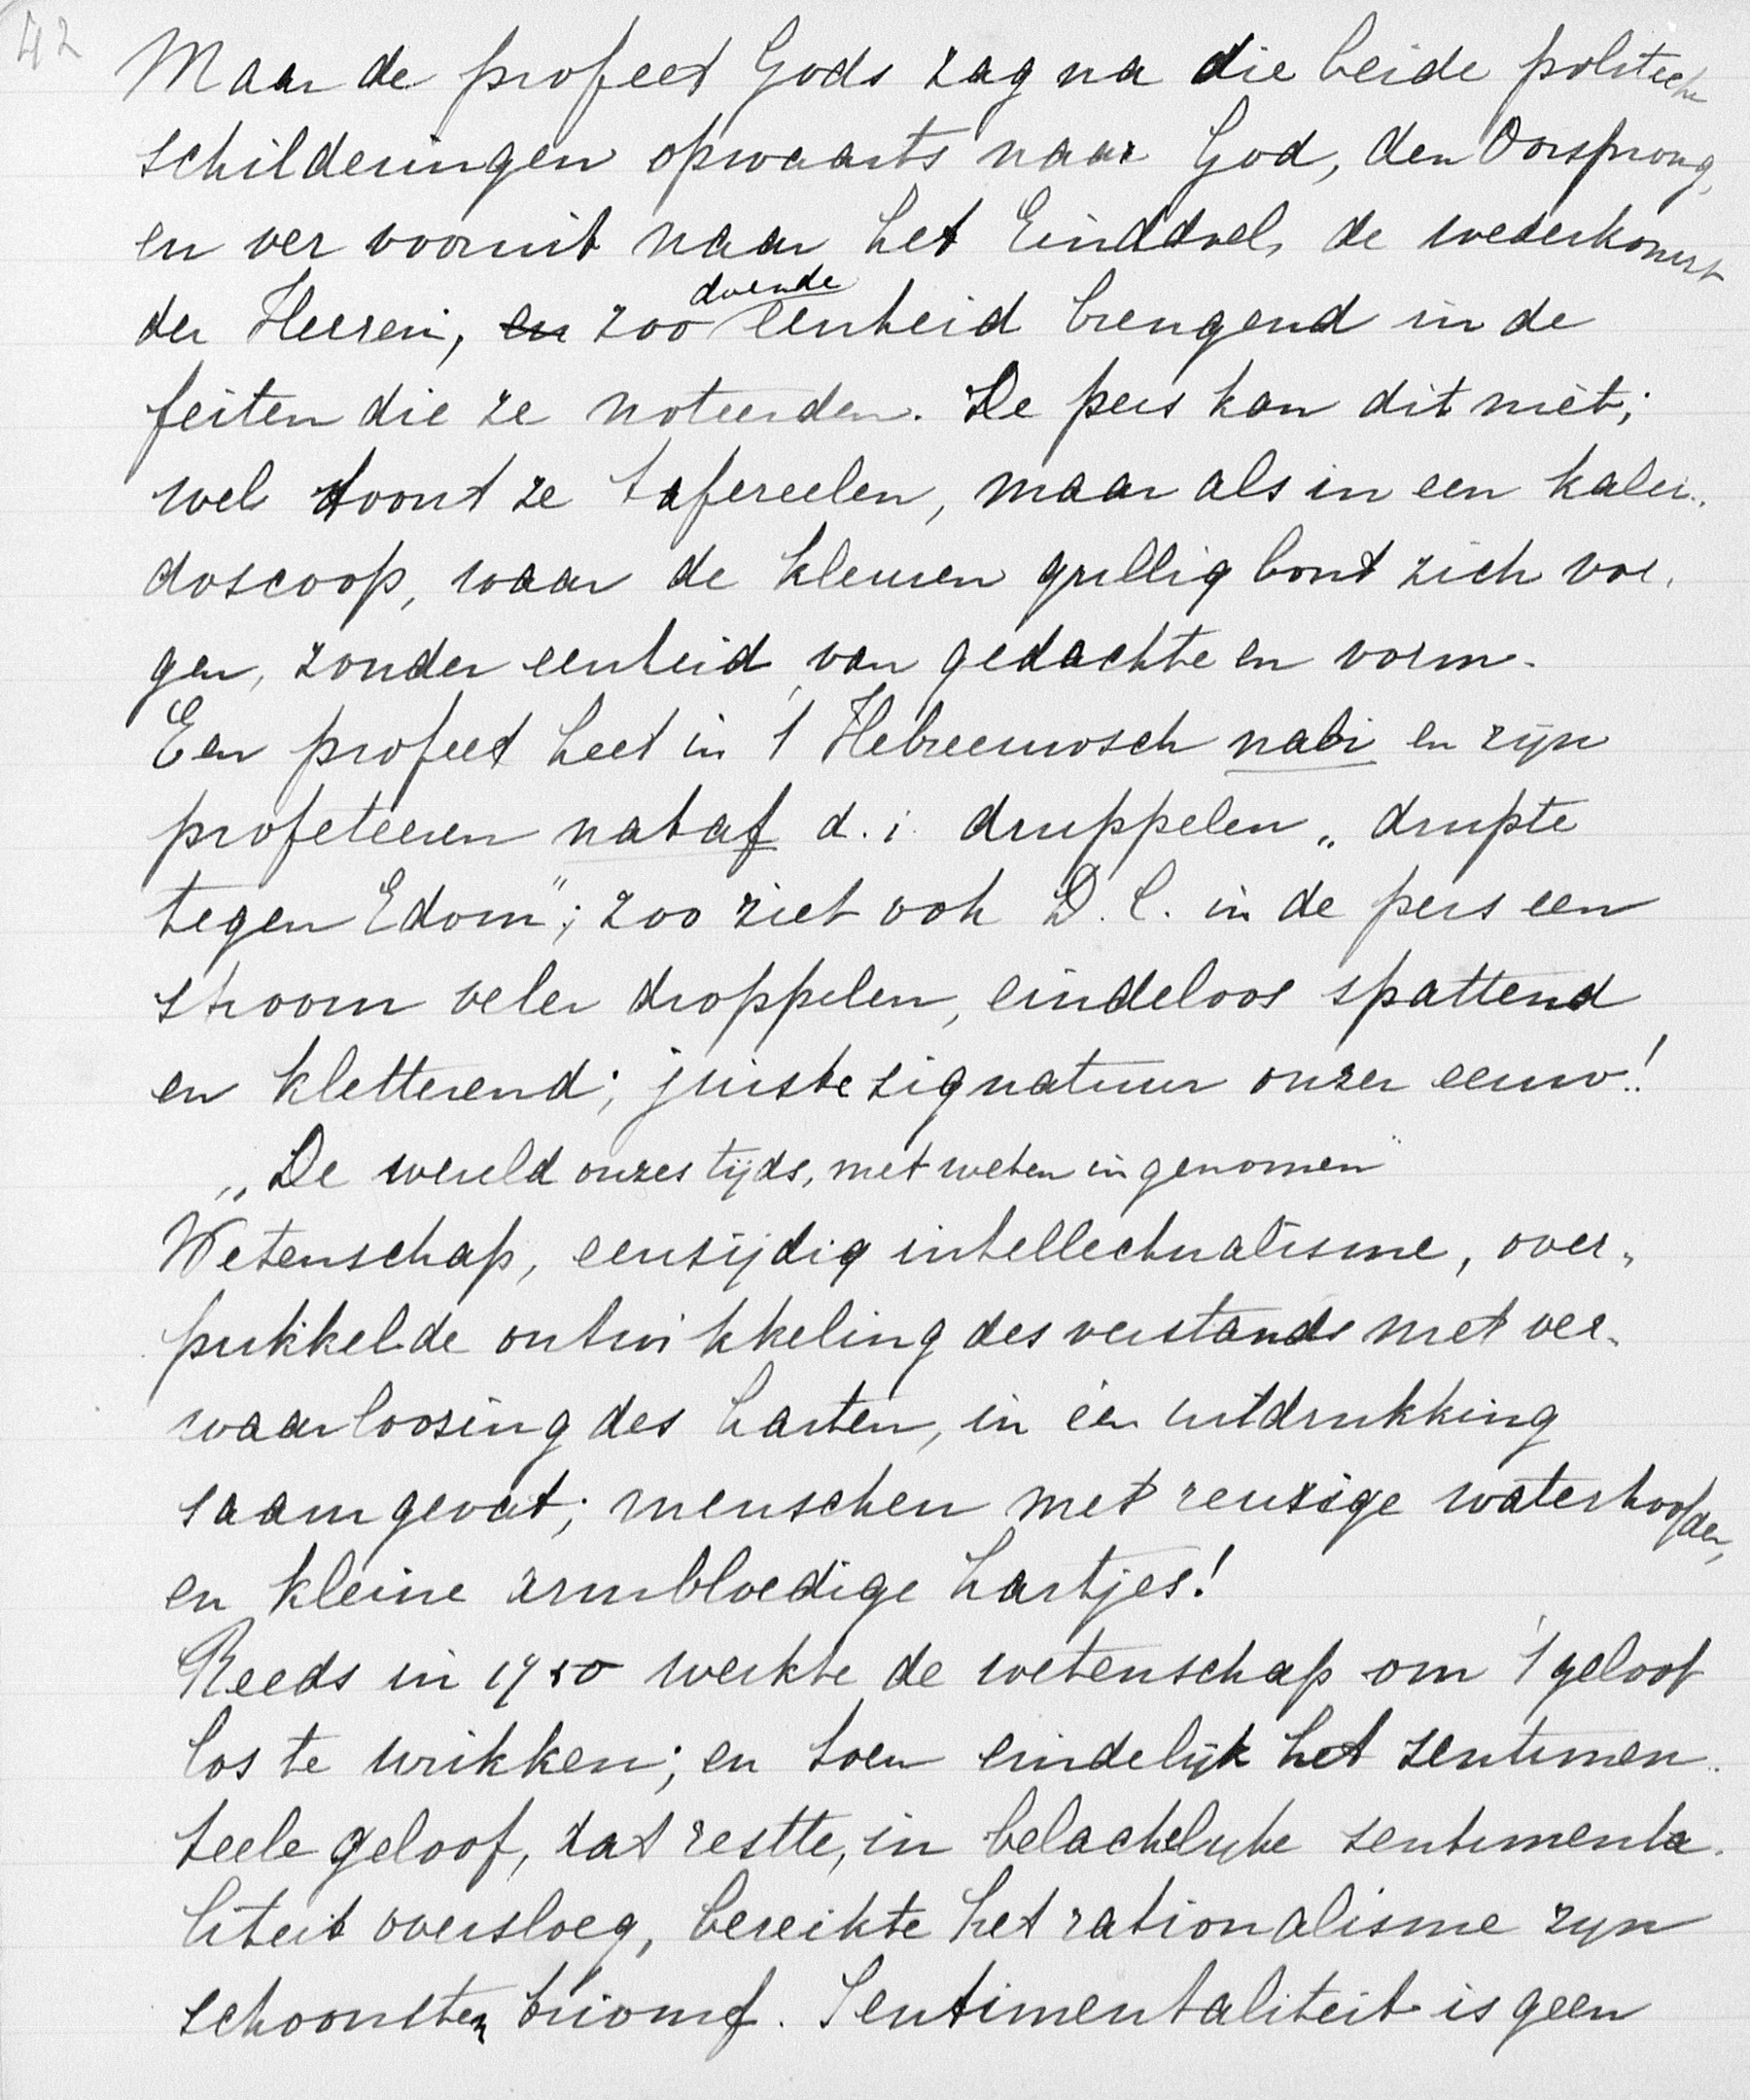 42
Maar de profeet Gods zag na die beide politieke
schilderingen opwaarts naar God, den Oorsprong,
en ver vooruit naar het Einddoel, de wederkomst
des Heeren, en zoo doende eenheid brengend in de
feiten die ze noteerden. De pers kan dit niet;
wel toont ze tafereelen, maar als in een kalei-
doscoop, waar de kleuren grillig bont zich voe-
gen, zonder eenheid van gedachte en vorm.
Een profeet heet in 't Hebreeuwsch nabi en zijn
profeteeren nataf d. i. druppelen „drupte
tegen Edom"; zoo ziet ook D. C. in de pers een
stroom veler droppelen, eindeloos spattend
en kletterend; juiste signatuur onzer eeuw!
„De wereld onzes tijds, met weten ingenomen"
Wetenschap, eenzijdig intellectualisme, over-
prikkelde ontwikkeling des verstands met ver-
waarloozing des harten, in één uitdrukking
saamgevat; menschen met reuzige waterhoofden,
en kleine armbloedige hartjes!
Reeds in 1750 werkte de wetenschap om 't geloof
los te wrikken; en toen eindelijk het sentimen-
teele geloof, dat restte, in belachelijke sentimenta-
liteit oversloeg, bereikte het rationalisme zijn
schoonsten triomf. Sentimentaliteit is geen